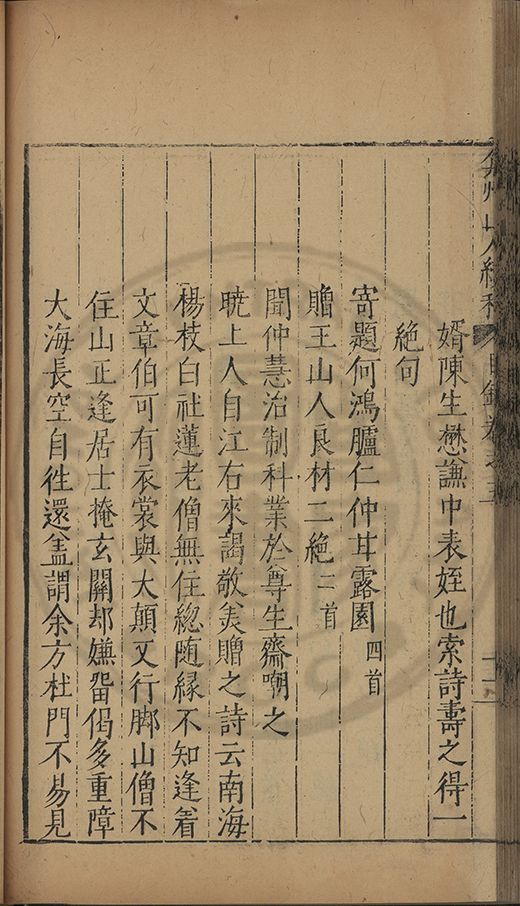 弇州山人續稿 目錄卷之五
婿陳生懋謙中表姪也索詩壽之得一
絶句
寄題何鴻臚仁仲甘露園四首
贈王山人良材二絶二首
聞仲慧治制科業於尊生齋嘲之
曉上人自江右來謁敬美贈之詩云南海
楊枝白社蓮老僧無住總随緣不知逢着
文章伯可有衣裳與大顛又行脚山僧不
住山正逢居士掩玄關却嫌留偈多重障
大海長空自徃還盖謂余方杜門不易見